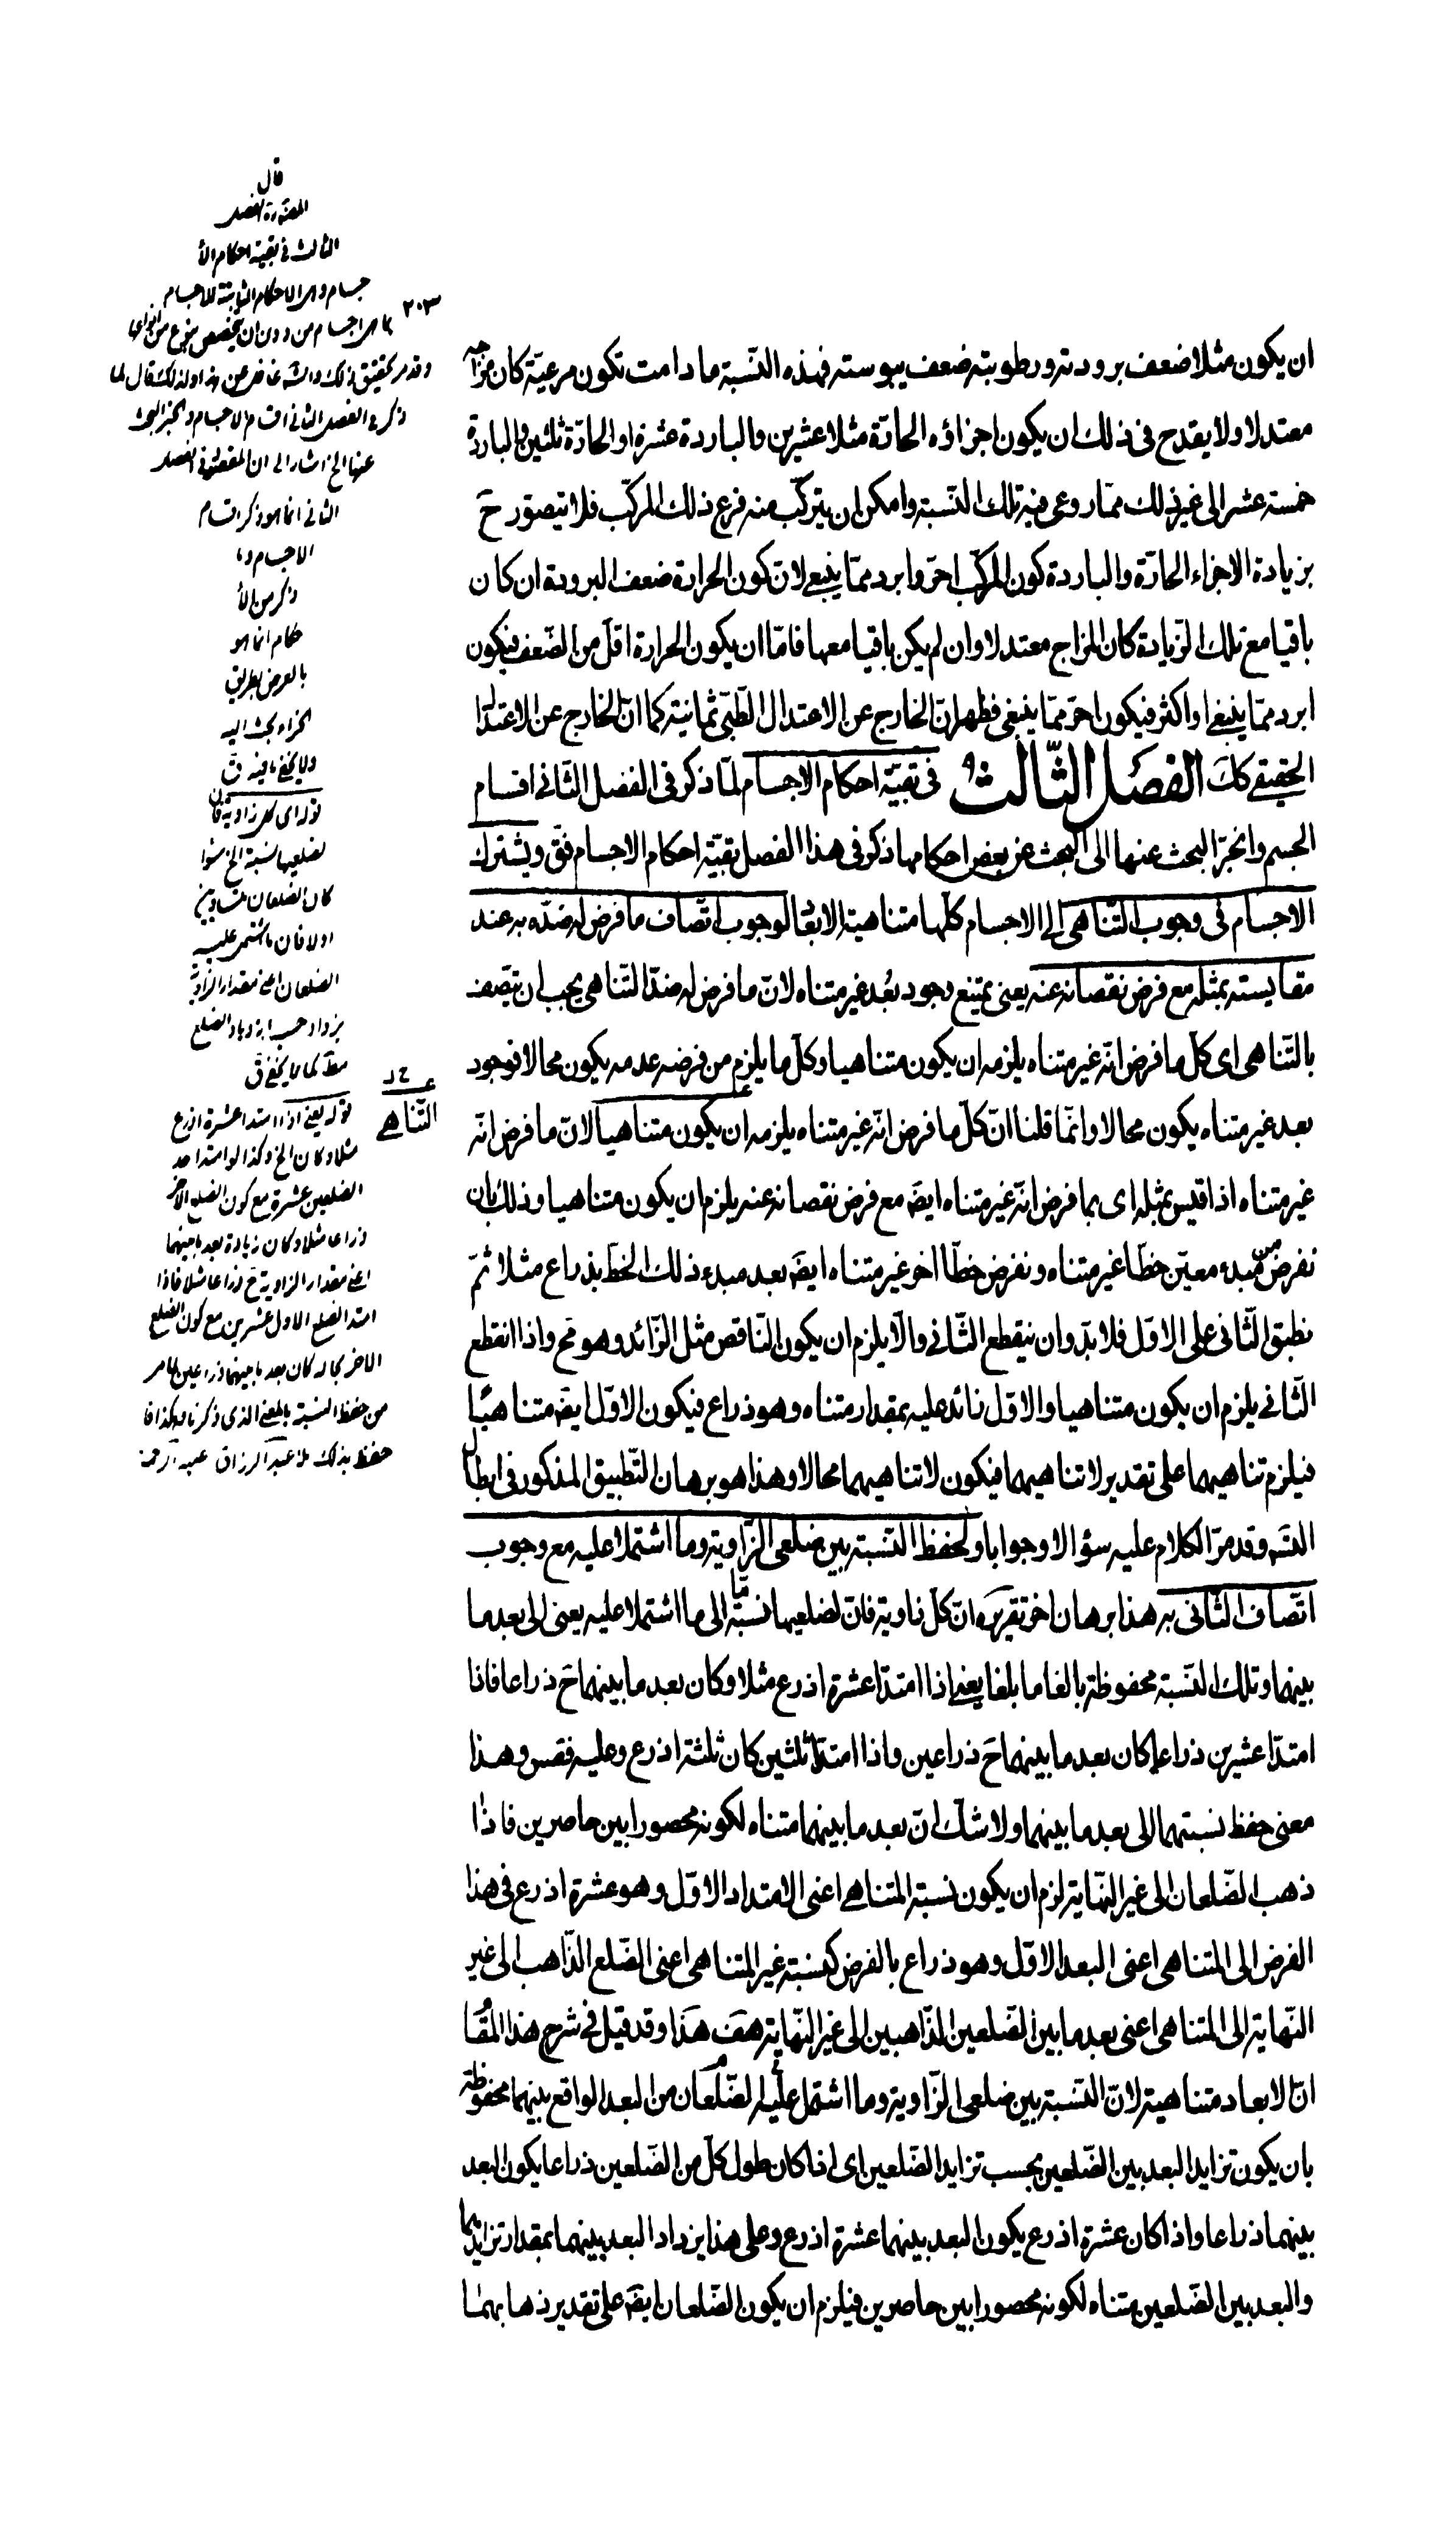 ان يكون مثلا ضعف برودته ورطوبته ضعف يبوسته فهذه النّسبة ما دامت تكون مرعيّة كان مزاجه
معتدلا ولا يقدح فى ذلك ان يكون اجزاؤه الحارّة مثلا عشرين والباردة عشرة او الحارّة ثلثين والباردة
خمسة عشر الى غير ذلك ممّا روعى فيه تلك النّسبة وامكن ان يتركّب منه فرع ذلك المركّب فلا يتصوّر حَ
بزيادة الاجزاء الحارّة والباردة كون المركّب احرّ وابرد ممّا ينبغى لانّ كون الحرارة ضعف البرودة ان كان
باقيا مع تلك الزّيادة كان المزاج معتدلا وان لم يكن باقيا معها فامّا ان يكون الحرارة اقلّ من الضّعف فيكون
ابرد ممّا ينبغى او اكثر فيكون احرّ ممّا ينبغى فظهر انّ الخارج عن الاعتدال الطّبّى ثمانية كما انّ الخارج عن الاعتدال
الحقيقى كك الفصل الثّالث فى بقيّة احكام الاجسام لمّا ذكر فى الفصل الثّانى اقسام
الجسم وانجرّ البحث عنها الى البحث عن بعض احكامها ذكر فى هذا الفصل بقيّة احكام الاجسام فقَ ويشترك
الاجسام فى وجوب التّناهى اى الاجسام كلّها متناهية الابعاد لوجوب اتّصاف ما فرض له ضدّه به عند
مقايسته بمثله مع فرض نقصانه عنه يعنى يمتنع وجود بُعد غير متناه لانّ ما فرض له ضدّ التّناهى يجب ان يتّصف
بالتّناهى اى كلّ ما فرض انّه غير متناه يلزمه ان يكون متناهيا وكلّ ما يلزم من فرضه عدمه يكون محالا فوجود
بعد غير متناه يكون محالا وانّما قلنا انّ كلّ ما فرض انّه غير متناه يلزمه ان يكون متناهيا لانّ ما فرض انّه
غير متناه اذا قيس بمثله اى بما فرض انّه غير متناه ايضَ مع فرض نقصانه عنه يلزم ان يكون متناهيا وذلك بان
نفرض من مبدء معيّن خطّا غير متناه ونفرض خطّا اخر غير متناه ايضَ بعد مبدء ذلك الخطّ بذراع مثلا ثمّ
نطبق الثّانى على الاوّل فلا بدّ وان ينقطع الثّانى والّا يلزم ان يكون النّاقص مثل الزّائد وهو مح واذا انقطع
الثّانى يلزم ان يكون متناهيا والاوّل زائد عليه بمقدار متناه وهو ذراع فيكون الاوّل ايضَ متناهيًا
فيلزم تناهيهما على تقدير لا تناهيهما فيكون لا تناهيهما محالا وهذا هو برهان التّطبيق المذكور فى ابطال
التسَ وقد مرّ الكلام عليه سؤالا وجوابا ولحفظ النّسبة بين ضلعى الزّاوية وما اشتملا عليه مع وجوب
اتّصاف الثّانى به هذا برهان اخر تقريره انّ كلّ زاوية فانّ لضلعيها نسبة مّا الى ما اشتملا عليه يعنى الى بعد ما
بينهما وتلك النّسبة محفوظة بالغا ما بلغا يعنى اذا امتدّا عشرة اذرع مثلا وكان بعد ما بينهما حَ ذراعا فاذا
امتدّا عشرين ذراعا كان بعد ما بينهما حَ ذراعين واذا امتدّا ثلثين كان ثلثة اذرع وعليه فقس وهذا
معنى حفظ نسبتهما الى بعد ما بينهما ولا شكّ انّ بعد ما بينهما متناه لكونه محصورا بين حاصرين فاذا
ذهب الضّلعان الى غير النّهاية لزم ان يكون نسبة المتناهى اعنى الامتداد الاوّل وهو عشرة اذرع فى هذا
الفرض الى المتناهى اعنى البعد الاوّل وهو ذراع بالفرض كنسبة غير المتناهى اعنى الضّلع الذّاهب الى غير
النّهاية الى المتناهى اعنى بعد ما بين الضّلعين الذّاهبين الى غير النّهاية هف هذا وقد قيل فى شرح هذا المقام
انّ الابعاد متناهية لانّ النّسبة بين ضلعى الزّاوية وما اشتمل عليه الضّلعان من البعد الواقع بينهما محفوظة
بان يكون تزايد البعد بين الضّلعين بحسب تزايد الضّلعين اى اذا كان طول كلّ من الضّلعين ذراعا يكون البعد
بينهما ذراعا واذا كان عشرة اذرع يكون البعد بينهما عشرة اذرع وعلى هذا يزداد البعد بينهما بمقدار تزايدهما
والبعد بين الضّلعين متناه لكونه محصورا بين حاصرين فيلزم ان يكون الضّلعان ايضَ على تقدير ذهابهما
قال
المصنف ره الفصل
الثالث فى بقية احكام الأ
جسام وهى الاحكام الثابتة للاجسام
بما هى اجسام من دون ان يختص بنوع من انواعها
وقد مر تحقيق ذلك والشه غافل عن هذا ولذلك قال لما
ذكر فى الفصل الثانى اقسام الاجسام وانجر البحث
عنها الخ اشار الى ان المقصود فى الفصل
الثانى انما هو ذكر اقسام
الاجسام وما
ذكر من الأ
حكام انما هو
بالعرض بطريق
انجراء بحث اليه
ولا يخفى ما فيه ق
قوله اى كل زاوية فان
لضلعيها نسبة الخ سواء
كان الضلعان متساويين
اولا فان ما اشتمل عليه
الضلعان اعنى مقدار الزاوية
يزداد حسب ازدياد الضلع
مط كما لا يخفى ق
قوله يعنى اذا امتدا عشرة اذرع
مثلا وكان الخ وكذا لو امتد احد
الضلعين عشرة مع كون الضلع الاخر
ذراعا مثلا وكان زيادة بعد ما بينهما
اعنى مقدار الزاوية حَ ذراعا مثلا فاذا
امتد الضلع الاول عشرين مع كون الضلع
الاخر بحاله كان بعد ما بينهما ذراعين لما مر
من حفظ النسبة بالمعنى الذى ذكرناه هكذا فا
حفظ بذلك ملا عبد الرزاق عليه الرحمة
٢٠٣
التّناهى